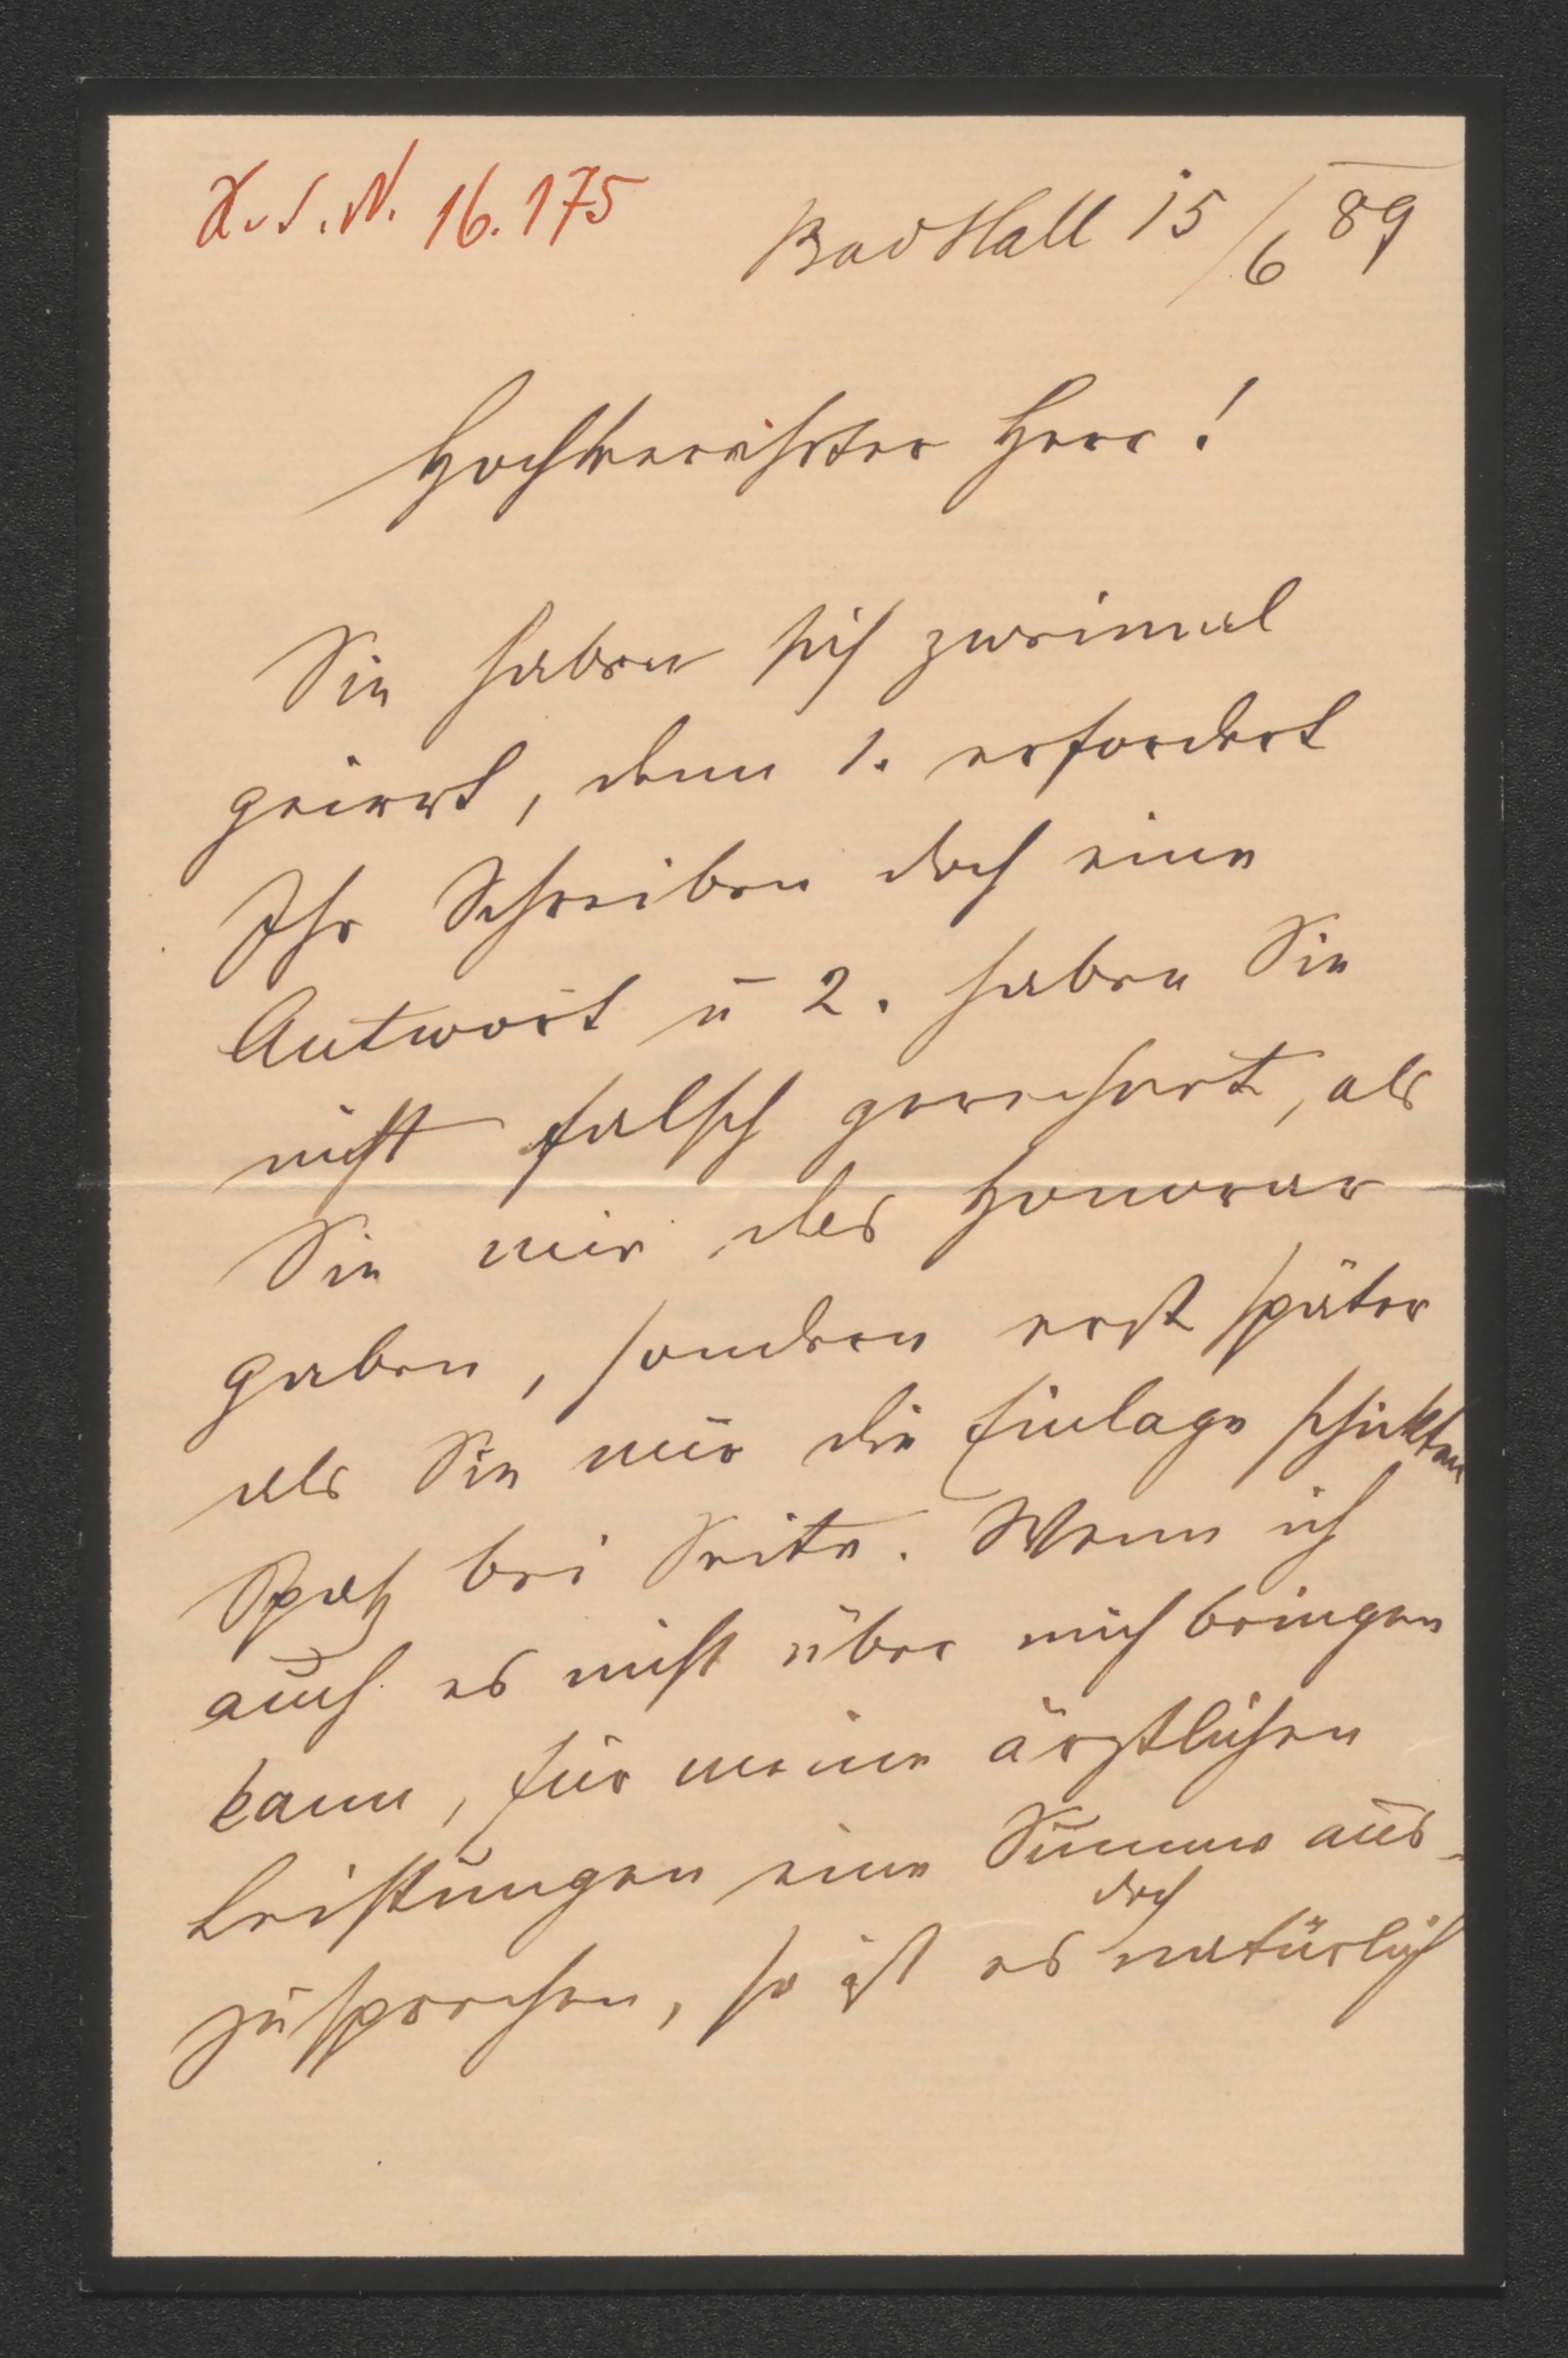 H.I.N. 16.175
Bad Hall 15/6 89
Hochverehrter Herr!
Sie haben sich zweimal
geirrt, denn 1. erfordert
Ihr Schreiben doch eine
Antwort u 2. haben Sie
nicht falsch gerechnet, als
Sie mir das Honorar
gaben, sondern erst später
als Sie mir die Einlage schickten
Spaß bei Seite. Wenn ich
auch es nicht über mich bringen
kann, für meine ärztlichen
Leistungen eine Summe aus-
zusprechen, so ist es doch natürlich